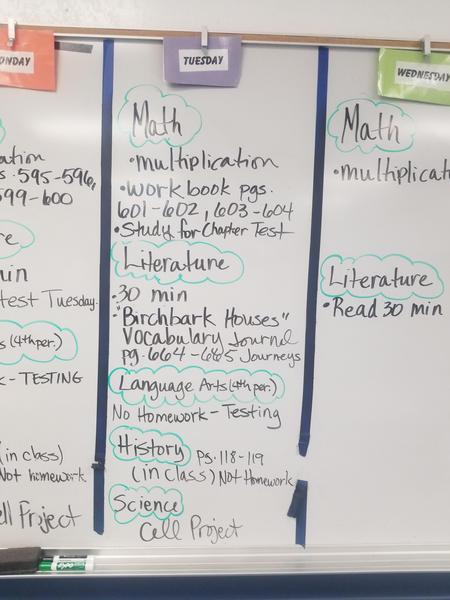 ONDAY
ation
s. 595-596,
599-600
re
min
test Tuesday.
s (4th per.)
k - TESTING
(in class)
Not homework
ell Project
TUESDAY
Math
•multiplication
•workbook pgs.
601-602, 603-604
•Study for Chapter Test
Literature
•30 min
•"Birchbark Houses"
Vocabulary Journal
pg. 664-665 Journeys
Language Arts (4th per.)
No Homework - Testing
History pgs. 118-119
(in class) Not Homework
Science
Cell Project
WEDNESDAY
Math
•multiplicat
Literature
•Read 30 min